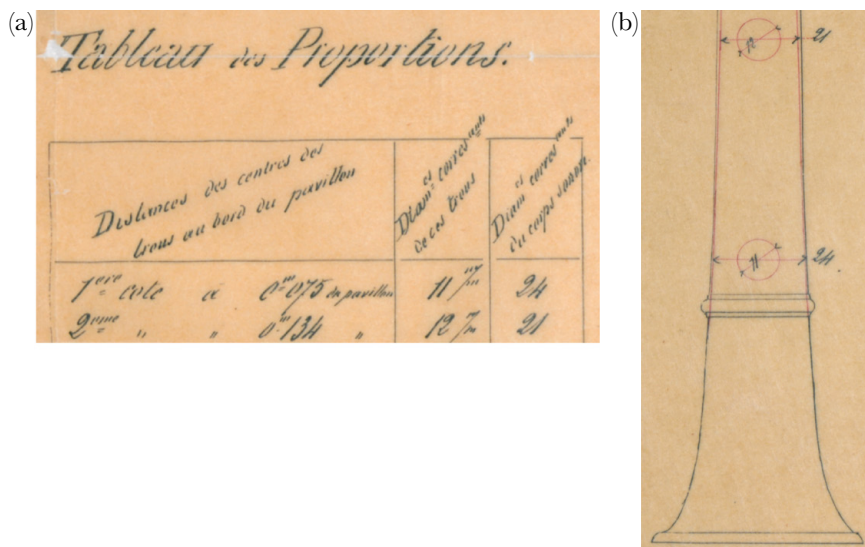 (a)
Tableau des Proportions.
Distances des centres des
trous au bord du pavillon
Diam.es corres.ants
de ces trous
Diam.es corres.ants
du corps sonore.
1ere cote à 0m075 du pavillon 11 m/m 24
2eme " " 0m134 " 12 m/m 21
(b)
12 21
11 24.